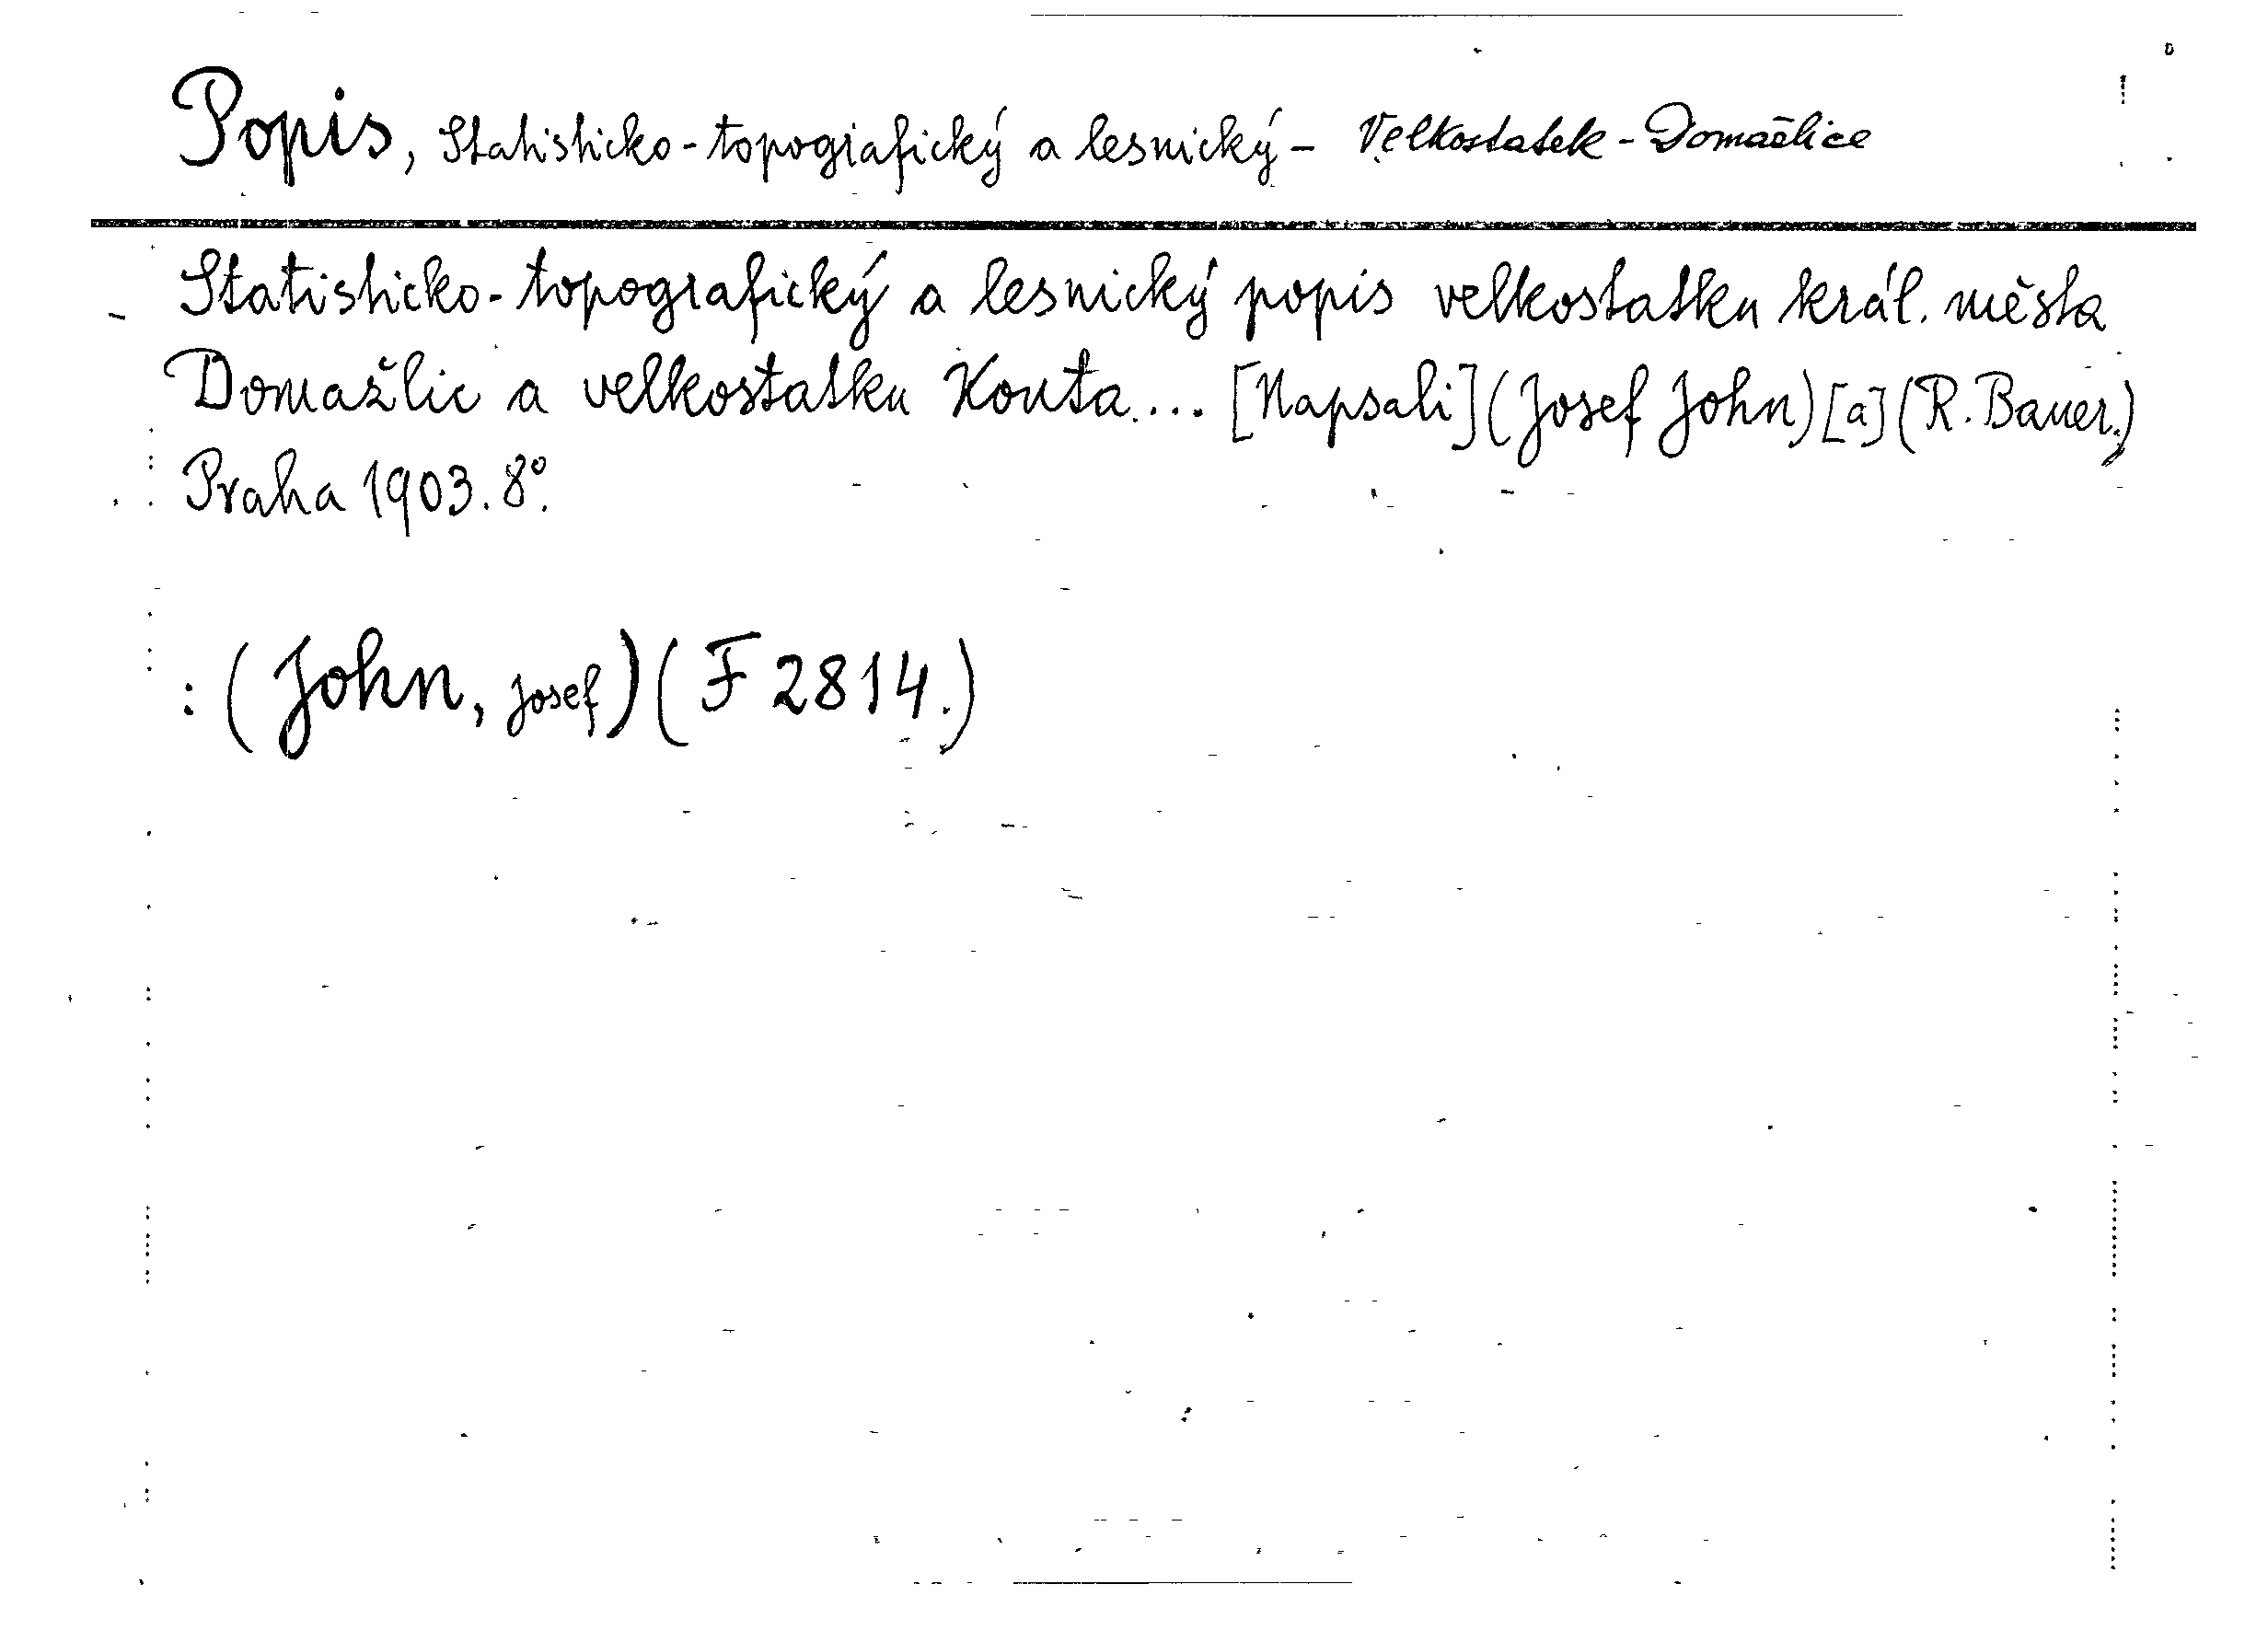 Popis, Statisticko-topografický a lesnický - Velkostatek - Domažlice
Statisticko-topografický a lesnický popis velkostatku král. města
Domažlic a velkostatku Kouta ... [Napsali] (Josef John) [a] (R. Bauer.)
Praha 1903. 8°.
: (John, Josef) (F 2814.)